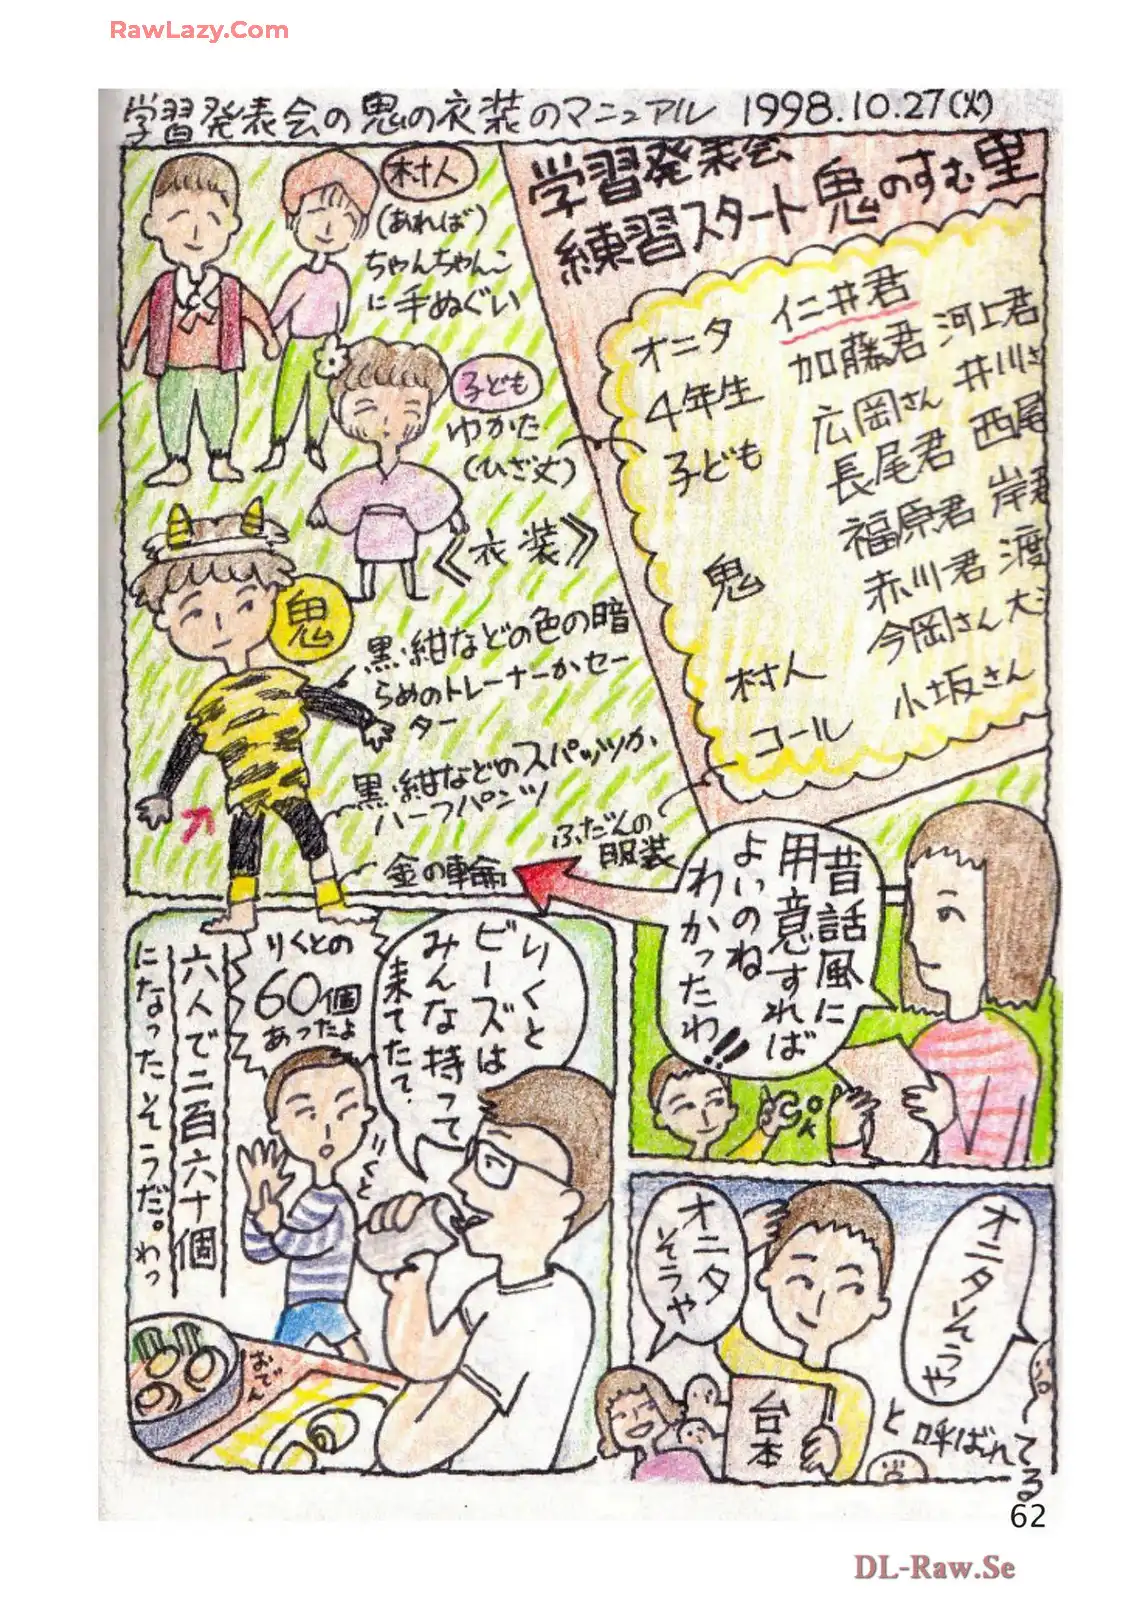 RawLazy.Com
学習発表会の鬼の衣装のマニュアル 1998.10.27(火)
学習発表会、
練習スタート 鬼のすむ里
オニタ 仁井君
加藤君 河上君
4年生 広岡さん 井川さ
子ども 長尾君 西尾
福原君 岸君
鬼 赤川君 渡
今岡さん 大
村人 小坂さん
コール
村人
(あれば)
ちゃんちゃんこ
に手ぬぐい
子ども
ゆかた
(ひざ丈)
《衣装》
鬼
黒・紺などの色の暗
らめのトレーナーかセー
ター
黒・紺などのスパッツか、
ハーフパンツ
金の輪
ふだんの
服装
昔話風に
用意すれば
よいのね
わかったわ!!
OK
りくと
ビーズは
みんな持って
来てたて、
りくとの
60個
あったよ
りくと
六人で二百六十個
になったそうだ。わっ
おでん
オニタそうや
オニタ
そうや
台本
と呼ばれてる
62
DL-Raw.Se